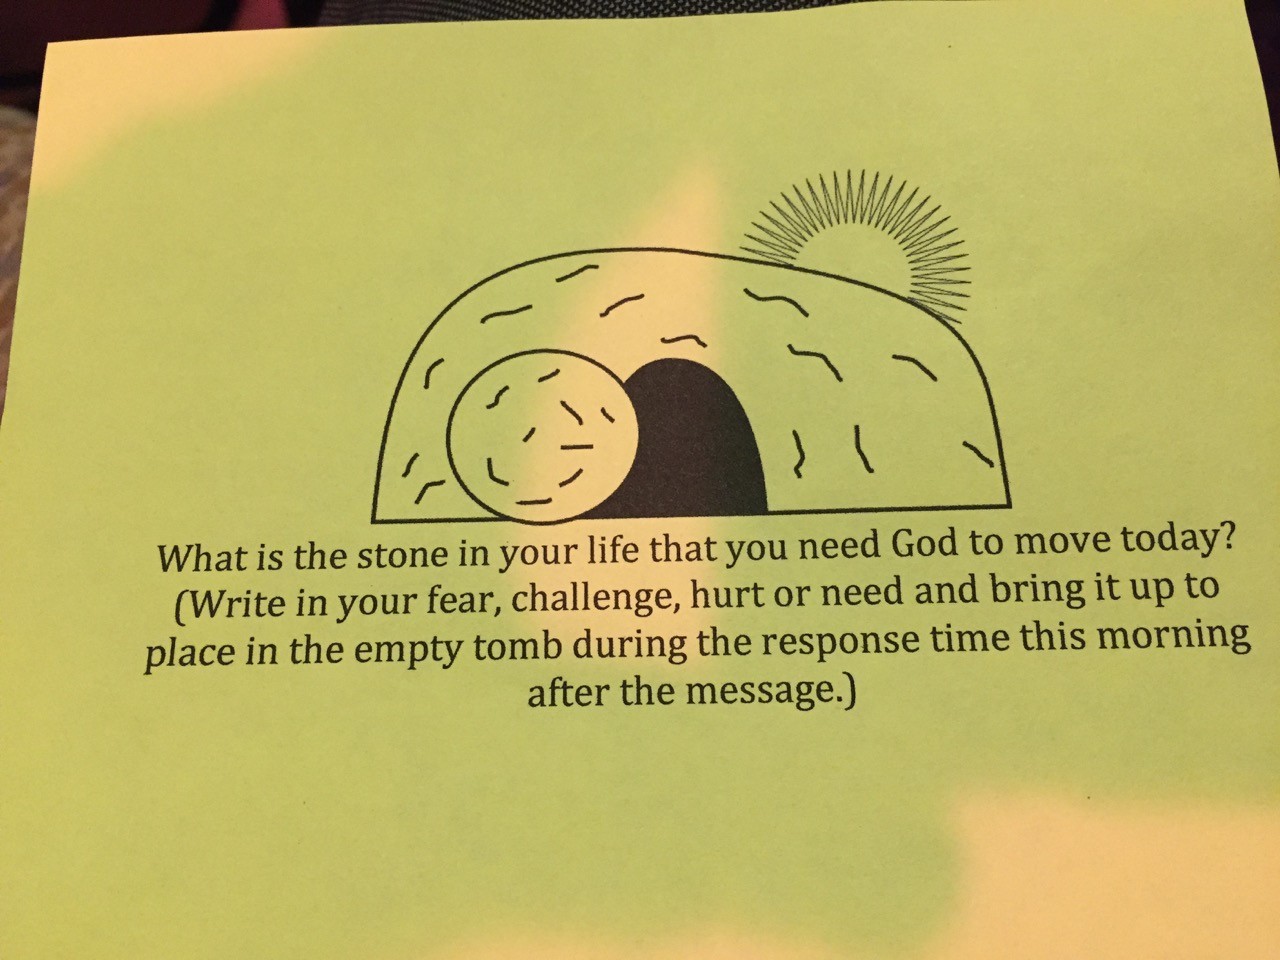 What is the stone in your life that you need God to move today?
(Write in your fear, challenge, hurt or need and bring it up to
place in the empty tomb during the response time this morning
after the message.)